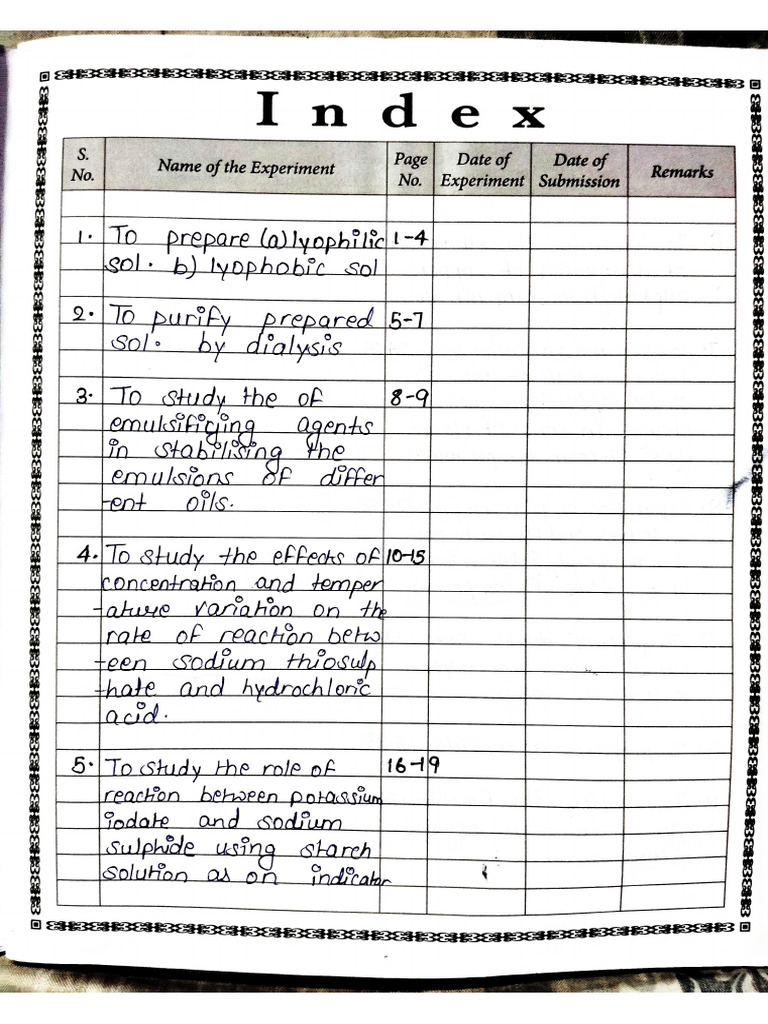 Index
S. No. Name of the Experiment Page No. Date of Experiment Date of Submission Remarks
1. To prepare (a) lyophilic 1-4
sol. b) lyophobic sol
2. To purify prepared 5-7
sol. by dialysis
3. To study the of 8-9
emulsificing agents
in stabilising the
emulsions of differ
-ent oils.
4. To study the effects of 10-15
concentration and temper
-ature variation on the
rate of reaction betw
-een sodium thiosulp
-hate and hydrochloric
acid.
5. To study the role of 16-19
reaction between potassium
iodate and sodium
sulphide using starch
solution as on indicator